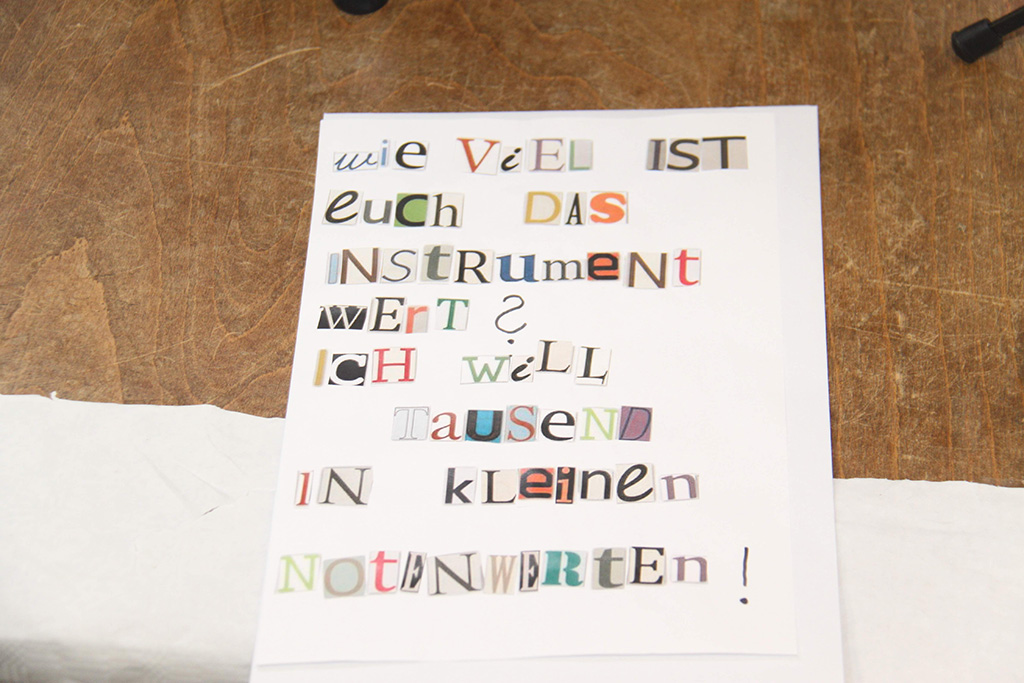 wiE ViEL IST
euch DAS
INSTRument
WErT ?
ICH WiLL
TausenD
IN kLeinen
NOTENWERTEn !